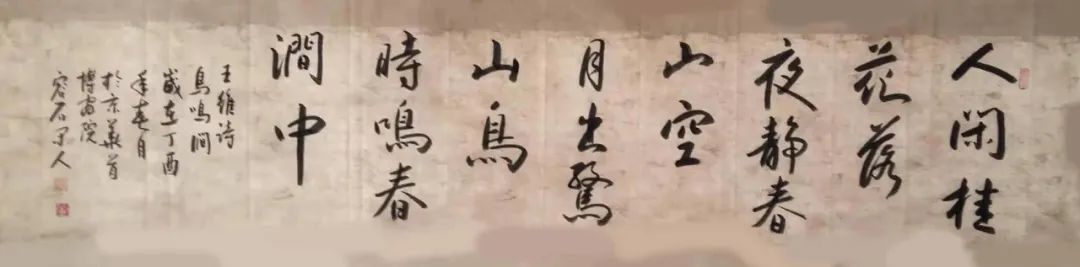 人閑桂
花落
夜静春
山空
月出驚
山鳥
時鳴春
澗中
王維詩
鳥鳴澗
歲在丁酉
年春月
於京華首
博書院
容石Ꮓ人